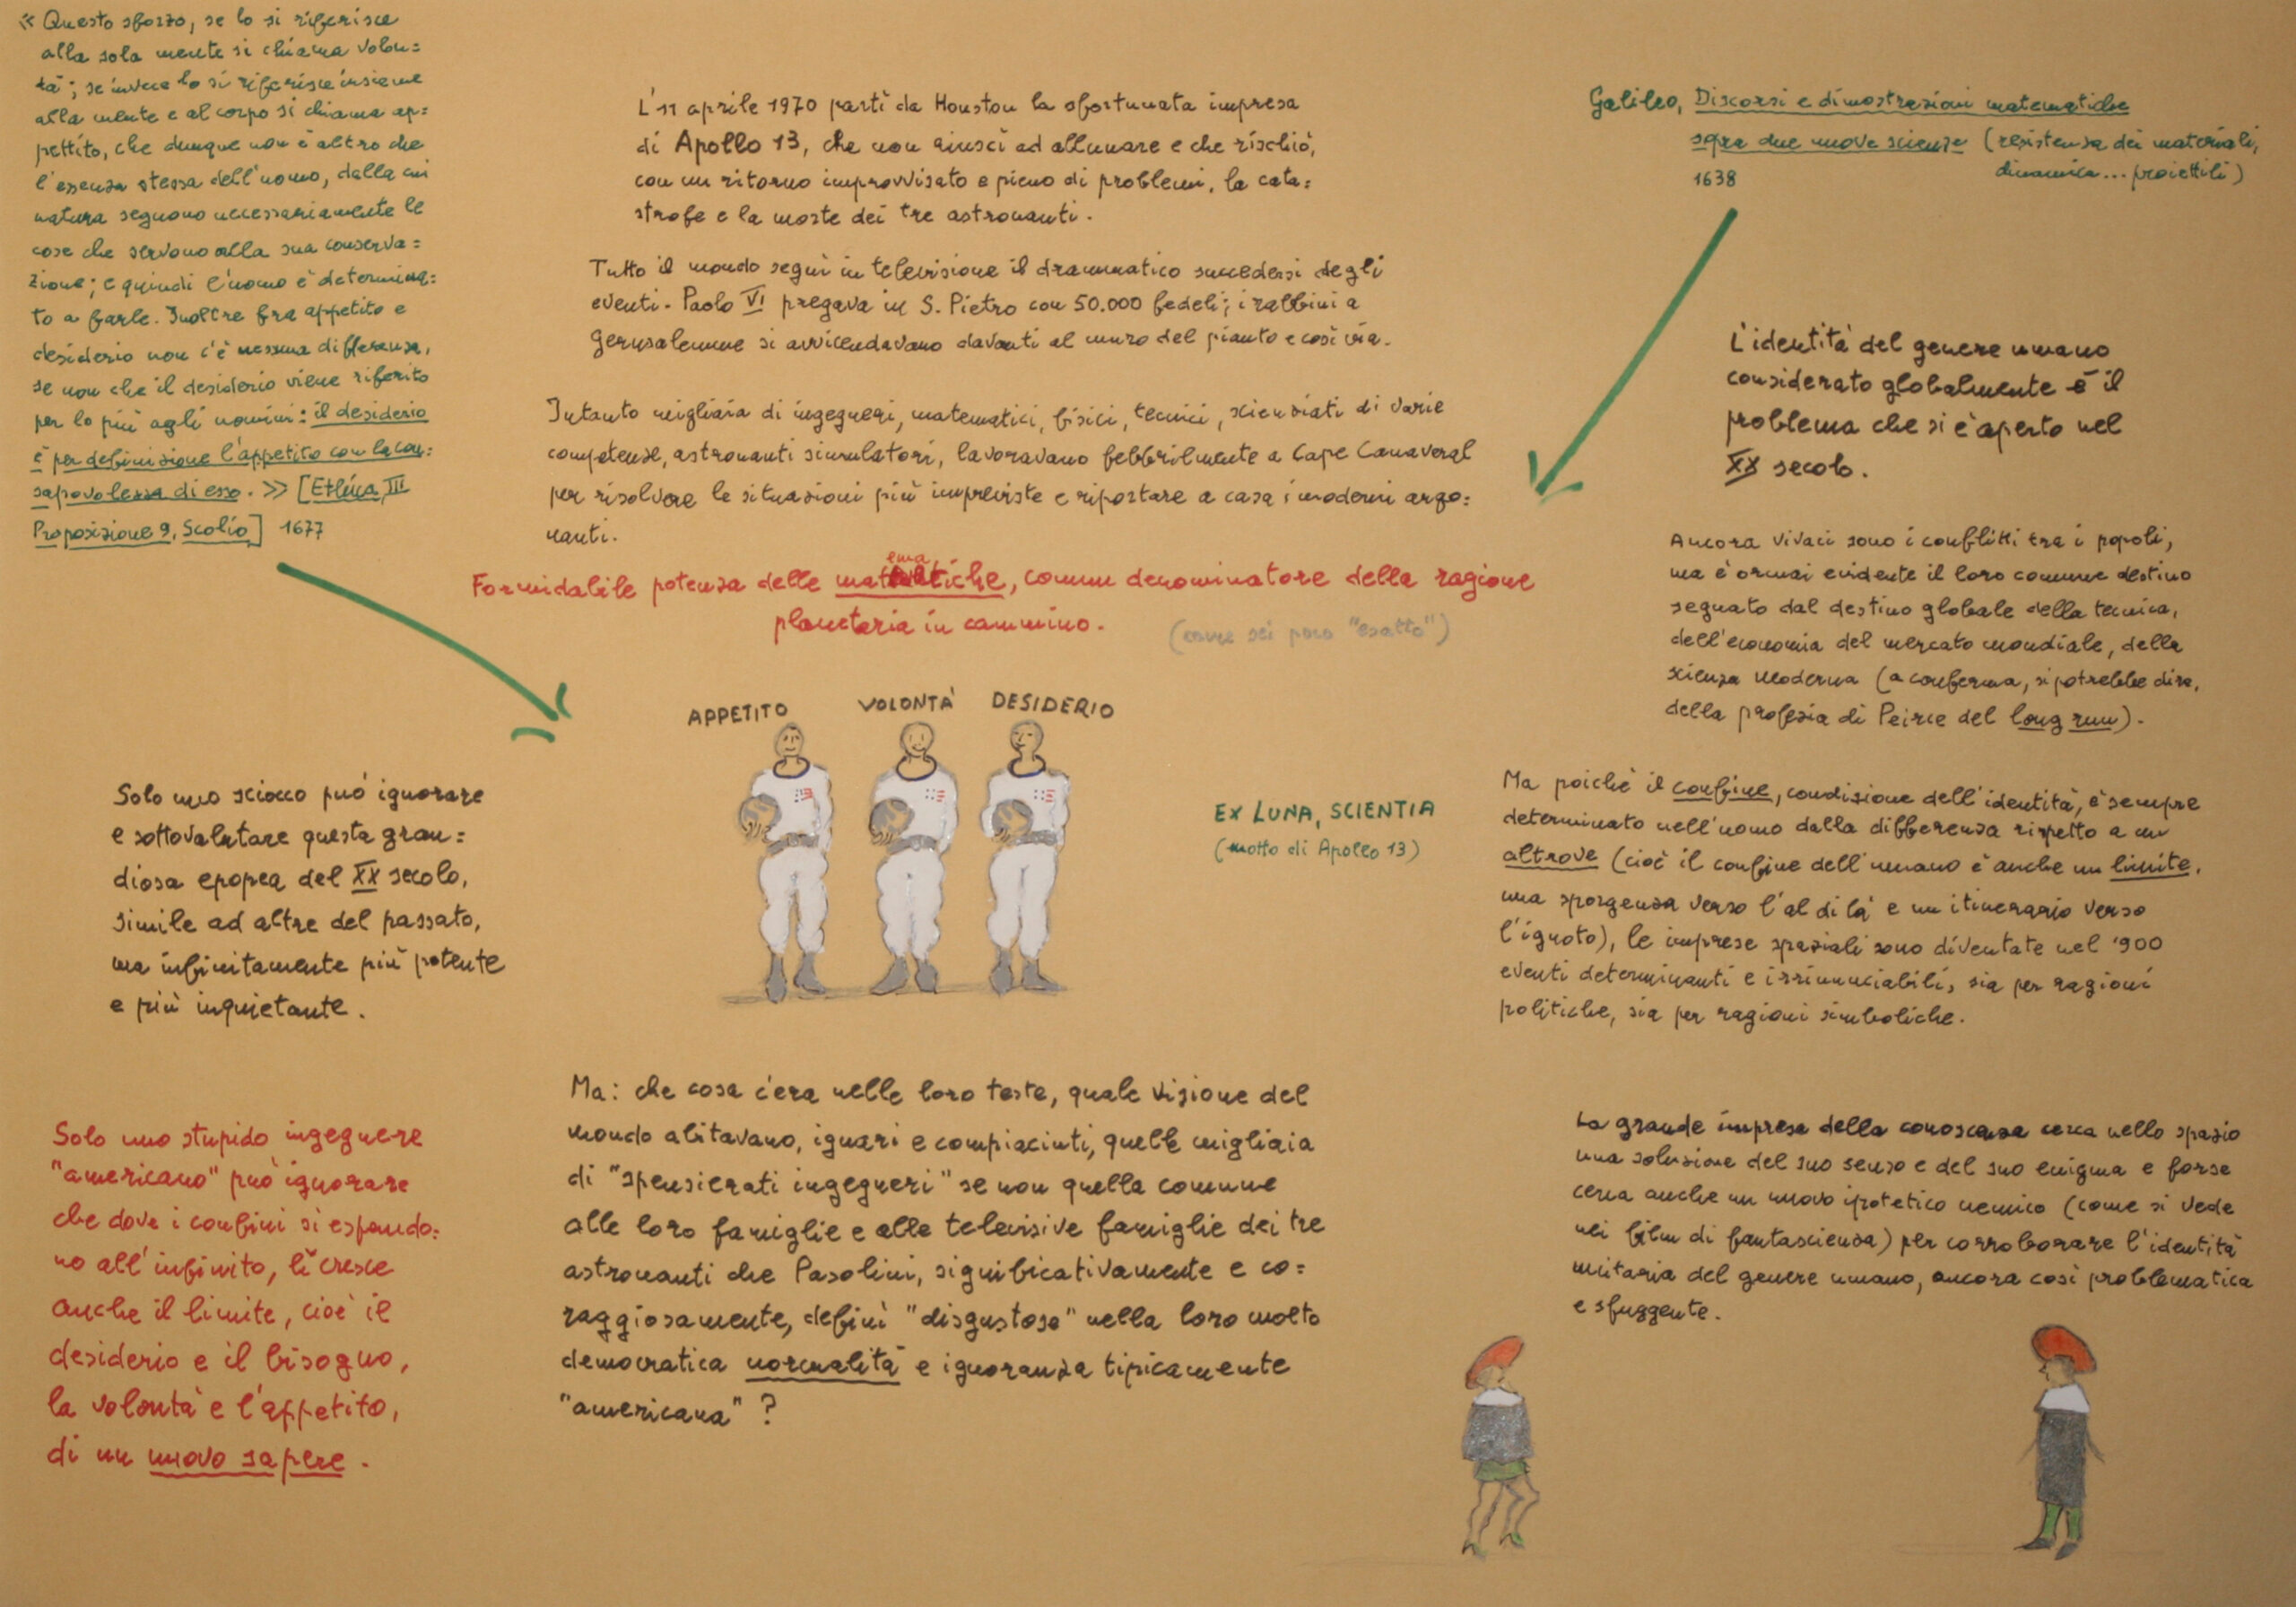 « Questo sforzo, se lo si riferisce
alla sola mente si chiama volon=
tà; se invece lo si riferisce insieme
alla mente e al corpo si chiama ap=
pettito, che dunque non è altro che
l'essenza stessa dell'uomo, dalla cui
natura seguono necessariamente le
cose che servono alla sua conserva=
zione; e quindi l'uomo è determina=
to a farle. Inoltre fra appetito e
desiderio non c'è nessuna differenza,
se non che il desiderio viene riferito
per lo più agli uomini: il desiderio
è per definizione l'appetito con la con=
sapevolezza di esso. » [Ethica, III
Proposizione 9, Scolio] 1677
L'11 aprile 1970 partì da Houston la sfortunata impresa
di Apollo 13, che non riuscì ad allunare e che rischiò,
con un ritorno improvvisato e pieno di problemi, la cata=
strofe e la morte dei tre astronauti.
Tutto il mondo seguì in televisione il drammatico succedersi degli
eventi. Paolo VI pregava in S. Pietro con 50.000 fedeli; i rabbini a
Gerusalemme si avvicendavano davanti al muro del pianto e così via.
Intanto migliaia di ingegneri, matematici, fisici, tecnici, scienziati di varie
competenze, astronauti simulatori, lavoravano febbrilmente a Cape Canaveral
per risolvere le situazioni più impreviste e riportare a casa i moderni argo=
nauti.
Formidabile potenza delle matematiche, comun denominatore della ragione
planetaria in cammino.
sei poco "esatto")
APPETITO VOLONTÀ DESIDERIO
EX LUNA, SCIENTIA
(motto di Apollo 13)
Solo uno sciocco può ignorare
e sottovalutare questa gran=
diosa epopea del XX secolo,
simile ad altre del passato,
ma infinitamente più potente
e più inquietante.
Solo uno stupido ingegnere
"americano" può ignorare
che dove i confini si espando=
no all'infinito, lì cresce
anche il limite, cioè il
desiderio e il bisogno,
la volontà e l'appetito,
di un nuovo sapere.
Ma: che cosa c'era nelle loro teste, quale visione del
mondo abitavano, ignari e compiaciuti, quelle migliaia
di "spensierati ingegneri" se non quella comune
alle loro famiglie e alle televisive famiglie dei tre
astronauti che Pasolini, significativamente e co=
raggiosamente, definì "disgustose" nella loro molto
democratica normalità e ignoranza tipicamente
"americana"?
Galileo, Discorsi e dimostrazioni matematiche
sopra due nuove scienze (resistenza dei materiali,
1638 dinamica... proiettili)
L'identità del genere umano
considerato globalmente è il
problema che si è aperto nel
XX secolo.
Ancora vivaci sono i conflitti tra i popoli,
ma è ormai evidente il loro comune destino
segnato dal destino globale della tecnica,
dell'economia del mercato mondiale, della
scienza moderna (a conferma, si potrebbe dire,
della profezia di Peirce del long run).
Ma poiché il confine, condizione dell'identità, è sempre
determinato nell'uomo dalla differenza rispetto a un
altrove (cioè il confine dell'umano è anche un limite,
una sporgenza verso l'al di là e un itinerario verso
l'ignoto), le imprese spaziali sono diventate nel '900
eventi determinanti e irrinunciabili, sia per ragioni
politiche, sia per ragioni simboliche.
La grande impresa della conoscenza cerca nello spazio
una soluzione del suo senso e del suo enigma e forse
cerca anche un nuovo ipotetico nemico (come si vede
nei film di fantascienza) per corroborare l'identità
unitaria del genere umano, ancora così problematica
e sfuggente.